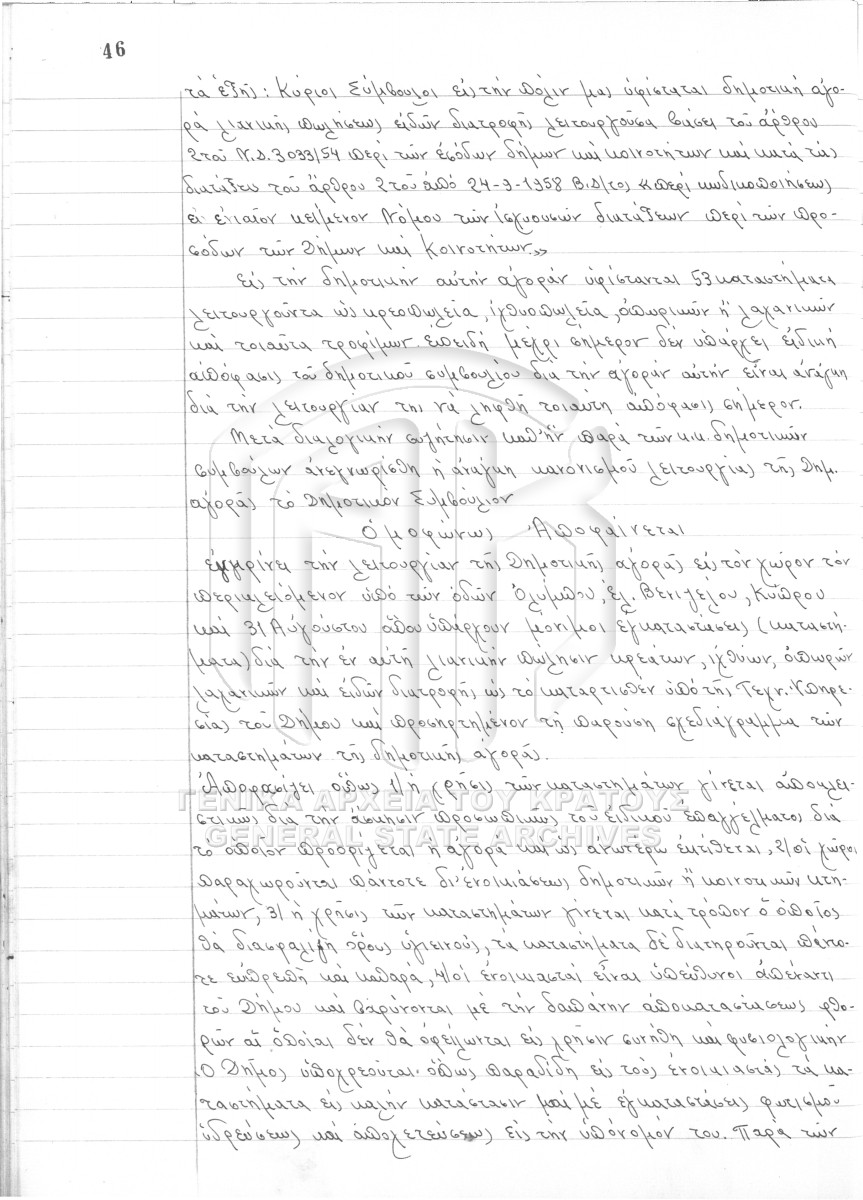 46
τὰ ἑξῆς: Κύριοι Σύμβουλοι εἰς τὴν πόλιν μας ὑφίσταται δημοτικὴ ἀγο-
ρὰ λιανικῆς πωλήσεως εἰδῶν διατροφῆς λειτουργοῦσα βάσει τοῦ ἄρθρου
2 τοῦ Ν.Δ. 3033/54 περὶ τῶν ἐσόδων δήμων καὶ κοινοτήτων καὶ κατὰ τὰς
διατάξεις τοῦ ἄρθρου 2 τοῦ ἀπὸ 24-9-1958 Β.Δ/τος «περὶ κωδικοποιήσεως
εἰς ἑνιαῖον κείμενον Νόμου τῶν ἰσχυουσῶν διατάξεων περὶ τῶν προ-
σόδων τῶν Δήμων καὶ Κοινοτήτων»
Εἰς τὴν δημοτικὴν αὐτὴν ἀγορὰν ὑφίστανται 53 καταστήματα
λειτουργοῦντα ὡς κρεοπωλεῖα, ἰχθυοπωλεῖα, ὀπωρικῶν ἢ λαχανικῶν
καὶ τοιαῦτα τροφίμων. Ἐπειδὴ μέχρι σήμερον δὲν ὑπάρχει εἰδικὴ
ἀπόφασις τοῦ δημοτικοῦ συμβουλίου διὰ τὴν ἀγορὰν αὐτὴν εἶναι ἀνάγκη
διὰ τὴν λειτουργίαν της νὰ ληφθῆ τοιαύτη ἀπόφασις σήμερον.
Μετὰ διαλογικὴν συζήτησιν καθ' ἣν παρὰ τῶν κ.κ. δημοτικῶν
συμβούλων ἀνεγνωρίσθη ἡ ἀνάγκη κανονισμοῦ λειτουργίας τῆς Δημ.
ἀγορᾶς τὸ Δημοτικὸν Συμβούλιον
Ὁμοφώνως Ἀποφαίνεται
ἐγκρίνει τὴν λειτουργίαν τῆς Δημοτικῆς ἀγορᾶς εἰς τὸν χῶρον τὸν
περικλειόμενον ὑπὸ τῶν ὁδῶν Ὀλύμπου, Ἐλ. Βενιζέλου, Κύπρου
καὶ 31 Αὐγούστου ὅπου ὑπάρχουν μόνιμοι ἐγκαταστάσεις (καταστή-
ματα) διὰ τὴν ἐν αὐτῇ λιανικὴν πώλησιν κρεάτων, ἰχθύων, ὀπωρῶν
λαχανικῶν καὶ εἰδῶν διατροφῆς ὡς τὸ καταρτισθὲν ὑπὸ τῆς Τεχν. Ὑπηρε-
σίας τοῦ Δήμου καὶ προσηρτημένον τῇ παρούσῃ σχεδιάγραμμα τῶν
καταστημάτων τῆς δημοτικῆς ἀγορᾶς.
Ἀποφασίζει ὅπως 1/ ἡ χρῆσις τῶν καταστημάτων γίνεται ἀποκλει-
στικῶς διὰ τὴν ἄσκησιν προσωπικῶς τοῦ εἰδικοῦ ἐπαγγέλματος διὰ
τὸ ὁποῖον προορίζεται ἡ ἀγορὰ καὶ ὡς ἀνωτέρω ἐκτίθεται, 2/ οἱ χῶροι
παραχωροῦνται πάντοτε δι' ἐνοικιάσεως δημοτικῶν ἢ κοινοτικῶν κτη-
μάτων, 3/ ἡ χρῆσις τῶν καταστημάτων γίνεται κατὰ τρόπον ὁ ὁποῖος
θὰ διασφαλίζῃ ὅρους ὑγιεινοὺς, τὰ καταστήματα δὲ διατηροῦνται πάντο-
τε εὐπρεπῆ καὶ καθαρά, 4/ οἱ ἐνοικιασταὶ εἶναι ὑπεύθυνοι ἀπέναντι
τοῦ Δήμου καὶ βαρύνονται μὲ τὴν δαπάνην ἀποκαταστάσεως φθο-
ρῶν αἱ ὁποῖαι δὲν θὰ ὀφείλωνται εἰς χρῆσιν συνήθη καὶ φυσιολογικὴν
Ὁ Δῆμος ὑποχρεοῦται ὅπως παραδίδῃ εἰς τοὺς ἐνοικιαστὰς τὰ κα-
ταστήματα εἰς καλὴν κατάστασιν καὶ μὲ ἐγκαταστάσεις φωτισμοῦ
ὑδρεύσεως καὶ ἀποχετεύσεως εἰς τὴν ὑπόνομόν του. Παρὰ τῶν
ΓΕΝΙΚΑ ΑΡΧΕΙΑ ΤΟΥ ΚΡΑΤΟΥΣ
GENERAL STATE ARCHIVES